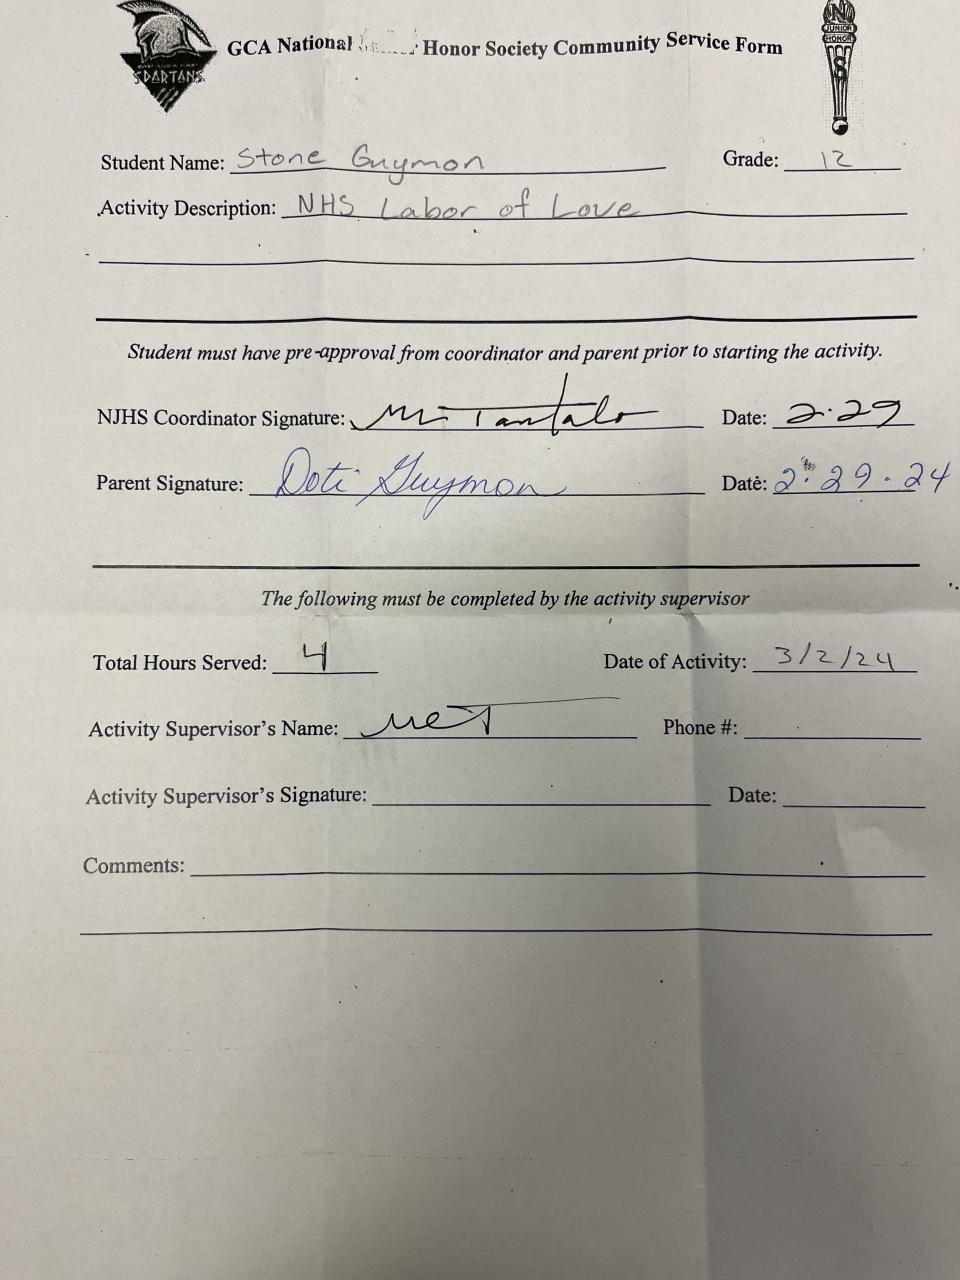 SPARTANS
GCA National Honor Society Community Service Form
N
JUNIOR
HONOR
S
Student Name: Stone Guymon Grade: 12
Activity Description: NHS Labor of Love
Student must have pre-approval from coordinator and parent prior to starting the activity.
NJHS Coordinator Signature: Tantalo Date: 2.29
Parent Signature: Doti Guymon Date: 2.29.24
The following must be completed by the activity supervisor
Total Hours Served: 4 Date of Activity: 3/2/24
Activity Supervisor's Name: Phone #:
Activity Supervisor's Signature: Date:
Comments: